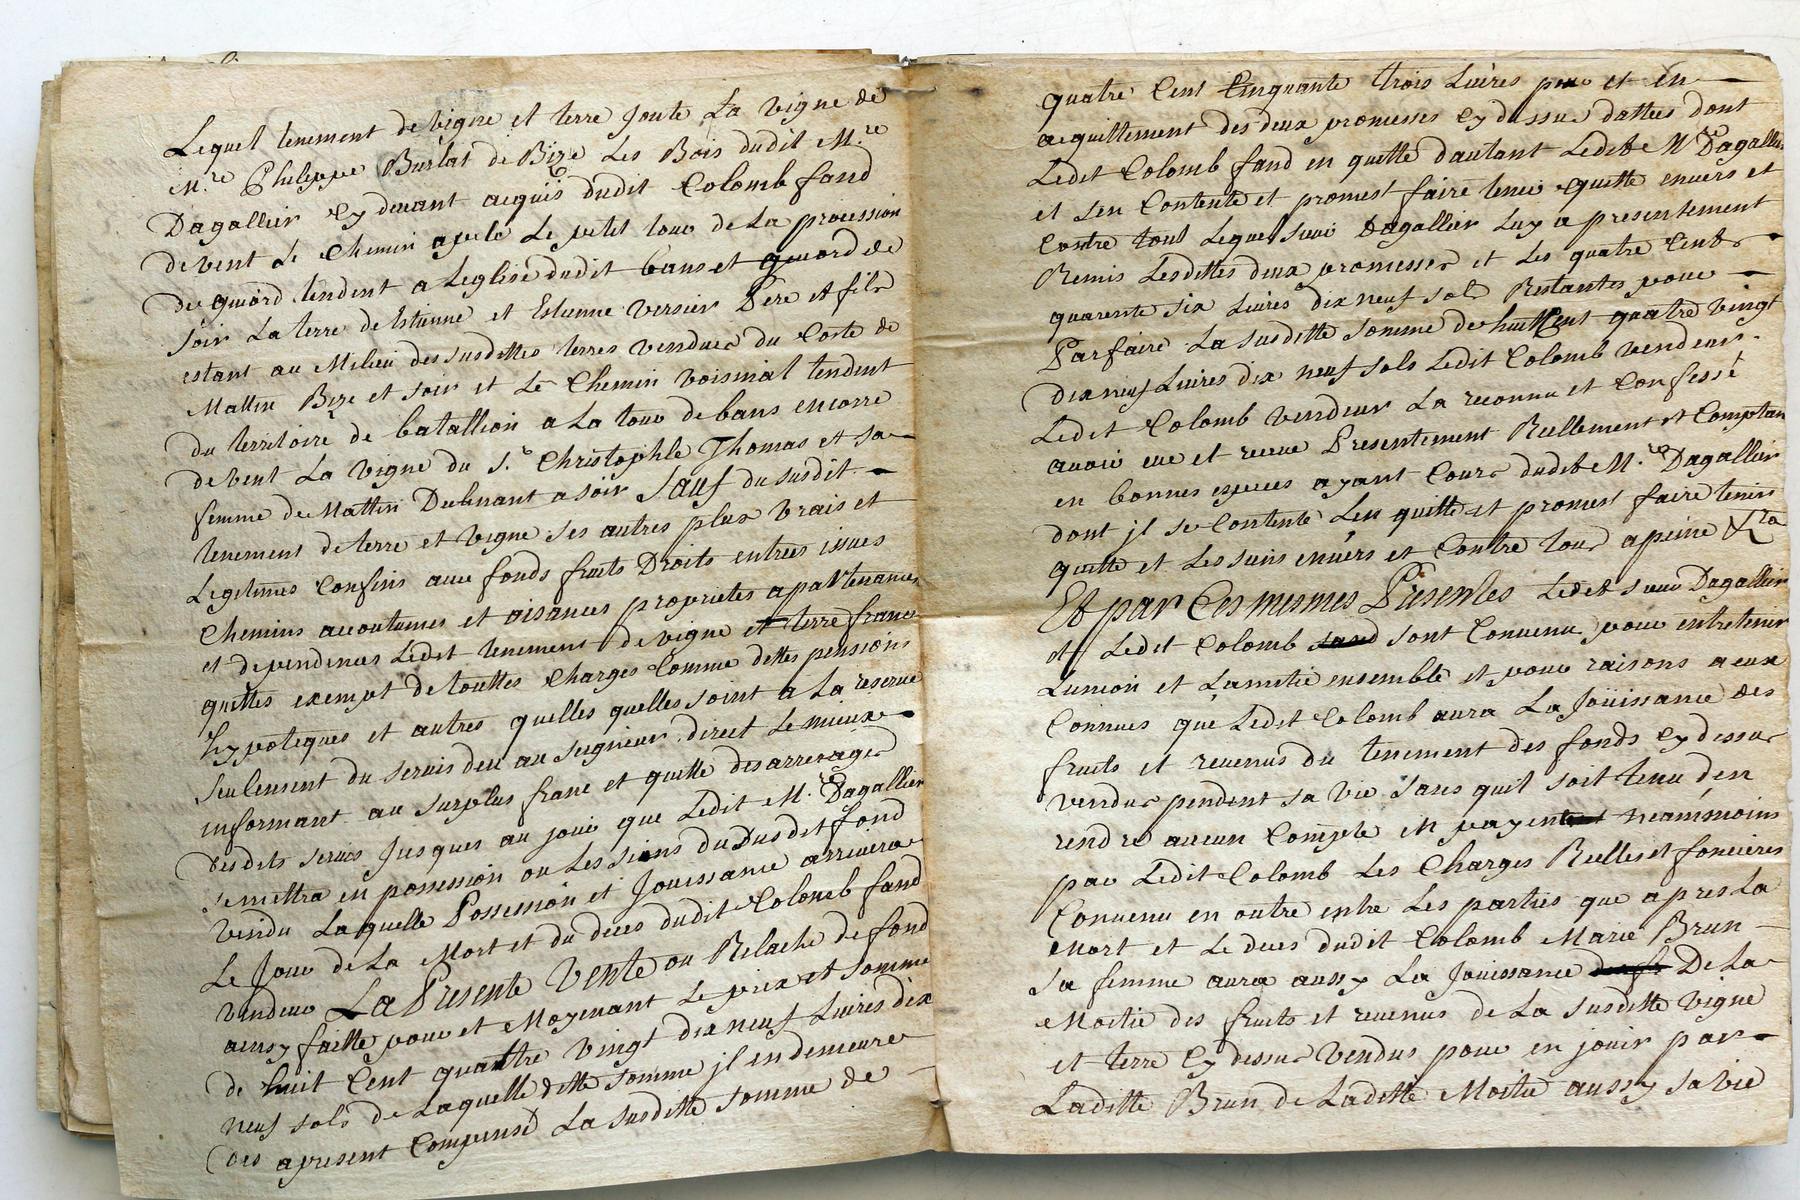 Lequel tenement de vigne et terre joute La vigne de
M.re Philippe Burlat de Bize Les Bois dudit M.re
Dagallier cy devant acquis dudit Colomb fand
de vent Le Chemin apele Le petit tour de La procession
de quiord tendent a Leglise dudit bans et quiord de
soir La terre de Estienne et Estienne versier Pere et fils
estant au Milieu des susdittes terres vendues du Coste de
Mattin Bize et soir et Le Chemin voisinal tendent
du territoire de batallion a La tour de bans encorre
de vent La vigne du S.r Christophle Thomas et sa
femme de Mattin Dubnant a soir Sauf du susdit
tenement de terre et vigne ses autres plus vrais et
Legitimes Confins avec fonds fruits Droits entrées issues
Chemins accoutumes et aisances proprietes apartenances
et dependences Ledit tenement de vigne et terre francs
quittes exempt de touttes Charges Comme dettes pensions
hypoteques et autres quelles quelles soint a La reserve
seulement du servis deu au seigneur direct Le mieux
informant au surplus franc et quitte des arrerages
desdits servis jusques au jour que Ledit M.re Dagallier
se mettra en possession ou Les siens du Dusdit fond
vendu Laquelle Possession et Jouissance arrivera
Le Jour de La Mort et du deces dudit Colomb fand
vendeur La Presente Vente ou Relache de fond
ainsy faitte pour et Moyenant Le prix et somme
de huit Cent quattre vingt dix neuf Livres dix
neuf sols de Laquelle ditte somme il en demeure
des apresent Compensé La susditte somme de
quatre Cent Cinquante trois Livres pour et en
acquittement des deux promesses cy dessus dattées dont
Ledit Colomb fand en quitte dautant Ledit M.re Dagallier
et sen Contente et promest faire tenir quitte envers et
Contre tout Lequel sieur Dagallier Luy a presentement
Remis Lesdittes deux promesses et Les quatre Cents
quarente six Livres dix neuf sols Restantes pour
Parfaire La susditte somme de huit Cent quatre vingt
dix neuf Livres dix neuf sols Ledit Colomb vendeur
Ledit Colomb vendeur La reconnu et Confessé
avoir eue et receue Presentement Reellement et Comptan
en bonnes especes ayant Cours dudit M.re Dagallier
dont il se Contente Len quitte et promest faire tenir
quitte et Les siens envers et Contre tous a peine &ra
Et par Ces mesmes Presentes Ledit sieur Dagallier
et Ledit Colomb sont Convenu pour entretenir
Lunion et Lamitié ensemble et pour raisons a eux
Connues que Ledit Colomb aura La Joüissance des
fruits et revenus du tenement des fonds cy dessus
vendus pendent sa vie sans quil soit tenu d'en
rendre aucun Compte en payent neammoins
par Ledit Colomb Les Charges Reelles et foncieres
Convenu en outre entre Les parties que apres La
Mort et Le deces dudit Colomb Marie Brun
sa femme aura aussy La Jouissance De La
Moitié des fruits et revenus de La susditte vigne
et terre cy dessus vendus pour en jouir par
Laditte Brun de Laditte Moitié aussy sa vie